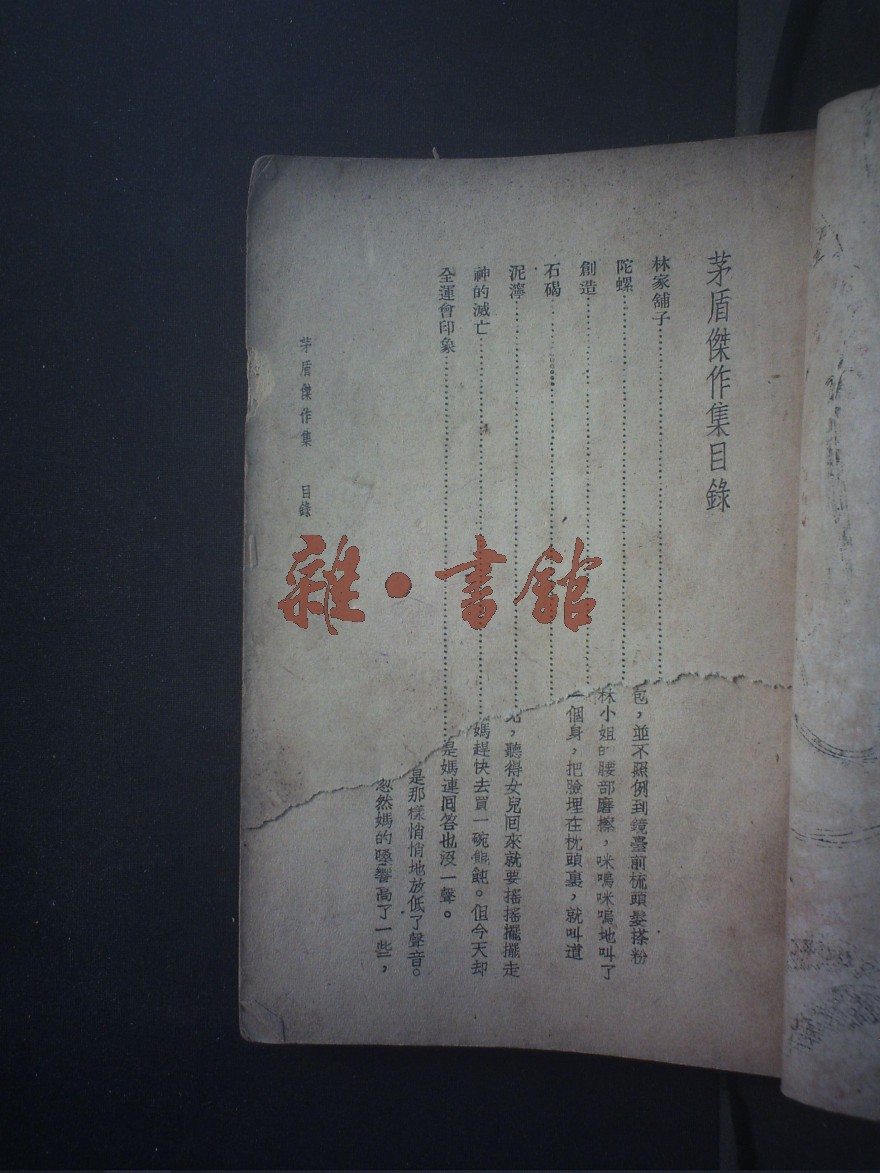 茅盾傑作集目錄
林家舖子
陀螺
創造
石碣
泥濘
神的滅亡
全運會印象
茅盾傑作集 目錄
雜·書館
包，並不照例到鏡臺前梳頭髮搽粉
林小姐的腰部磨擦，咪嗚咪嗚地叫了
一個身，把臉埋在枕頭裏，就叫道
，聽得女兒囘來就要搖搖擺擺走
媽趕快去買一碗餛飩。但今天却
是媽連囘答也沒一聲。
是那樣悄悄地放低了聲音。
忽然媽的嗓響高了一些，